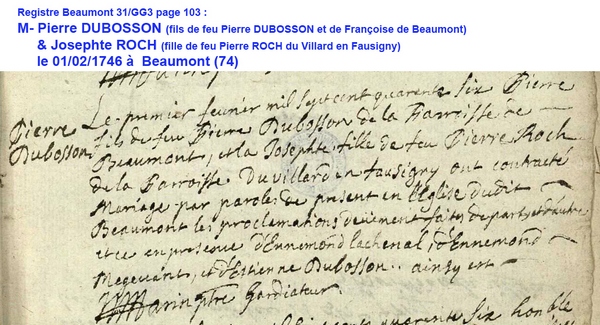 Registre Beaumont 31/GG3 page 103 :
M- Pierre DUBOSSON (fils de feu Pierre DUBOSSON et de Françoise de Beaumont)
& Josephte ROCH (fille de feu Pierre ROCH du Villard en Fausigny)
le 01/02/1746 à Beaumont (74)
Pierre
Dubosson
Le premier feuvrier mil sept cent quarente six Pierre
fils de feu Pierre Dubosson de la Parroisse de
Beaumont, et la Josephte fille de feu Pierre Roch
de la Parroisse Du villard en fausigny ont contracté
Mariage par paroles de present en l'Eglise dudit
Beaumont les proclamations deüement faites de part et d'autre
et ce en presence d'Ennemond Lachenal, d'Ennemond
Megevant, et d'Estienne Dubosson.. ainsy est
ptre Gardiateur
quarente six